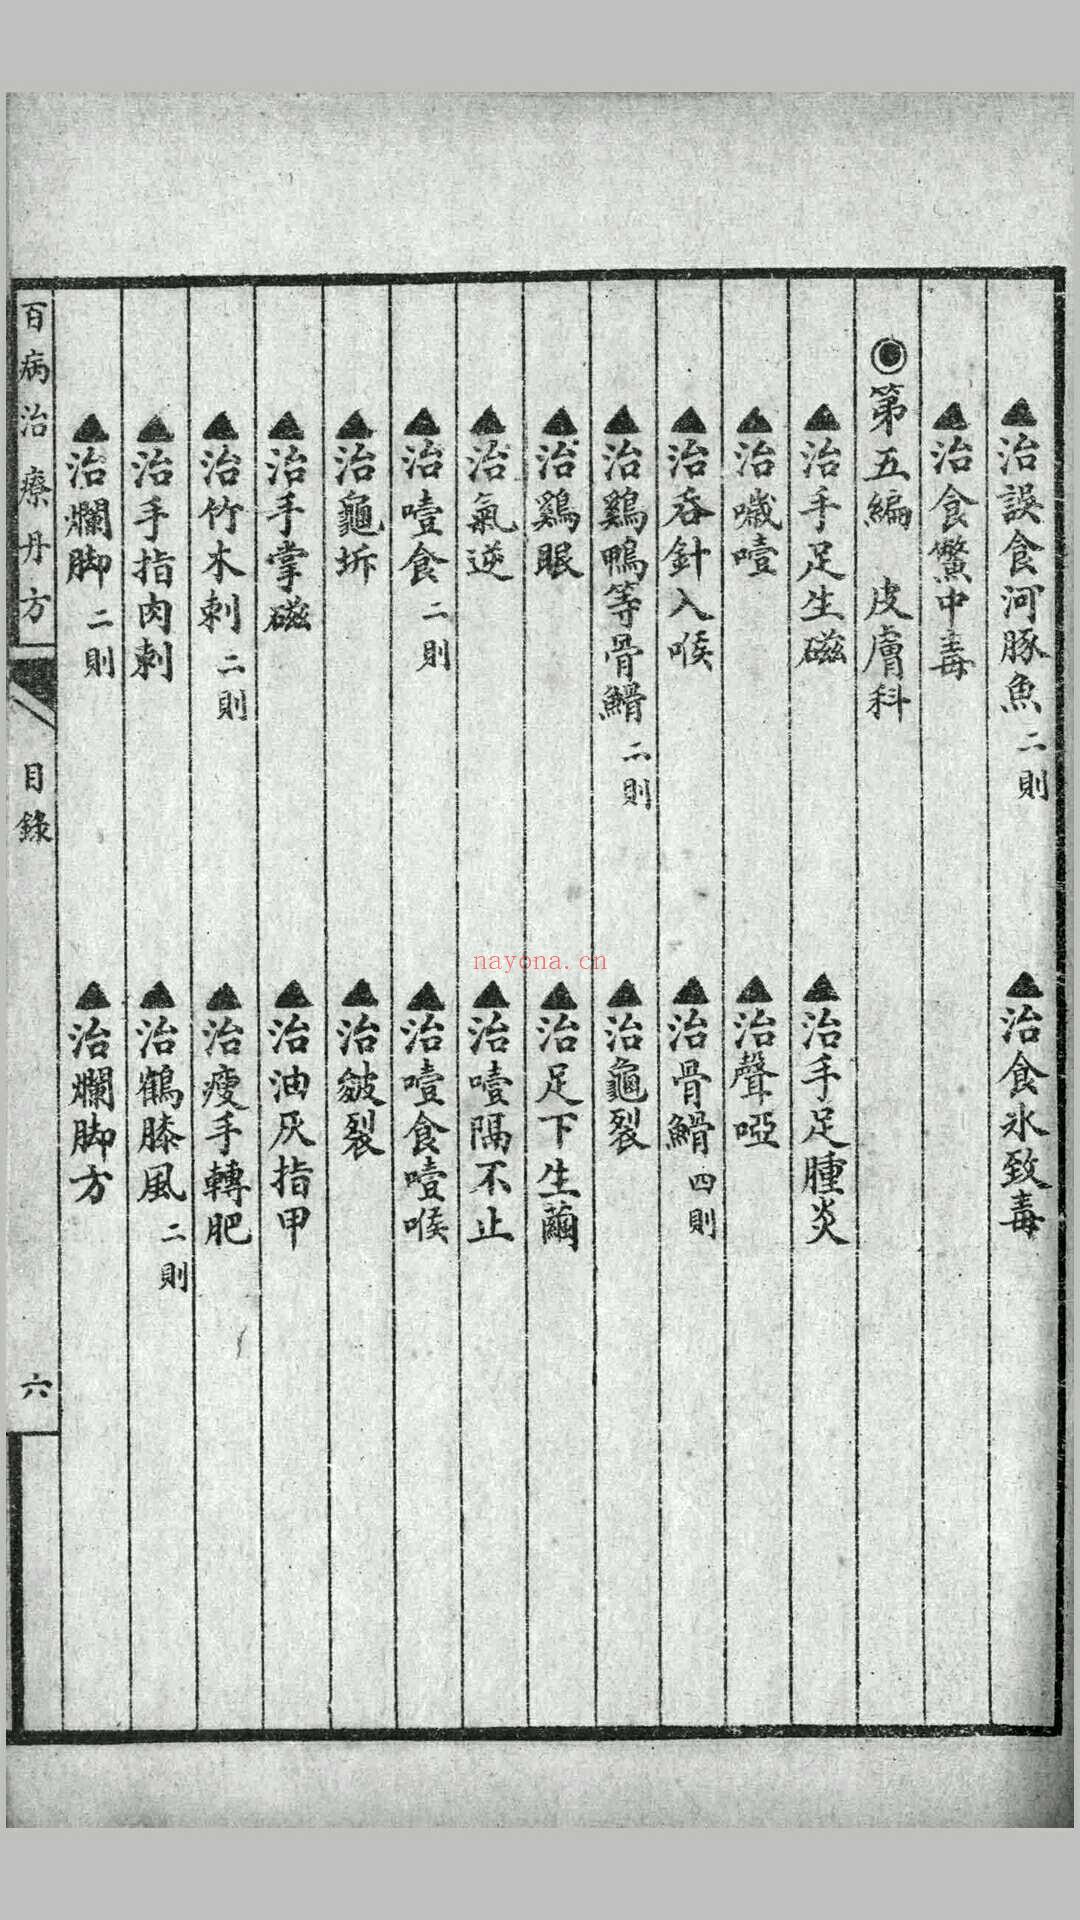 ▲治誤食河豚魚 二則 ▲治食冰致毒
▲治食鱉中毒
◉第五編 皮膚科
▲治手足生磁 ▲治手足腫炎
▲治噦噎 ▲治聲啞
▲治吞針入喉 ▲治骨鯁 四則
▲治鷄鴨等骨鯁 二則 ▲治龜裂
▲治鷄眼 ▲治足下生繭
▲治氣逆 ▲治噎隔不止
▲治噎食 二則 ▲治噎食噎喉
▲治龜坼 ▲治皴裂
▲治手掌磁 ▲治油灰指甲
▲治竹木刺 二則 ▲治瘦手轉肥
▲治手指肉刺 ▲治鶴膝風 二則
▲治爛脚 二則 ▲治爛脚方
百病治療丹方 目錄 六
nayona.cn